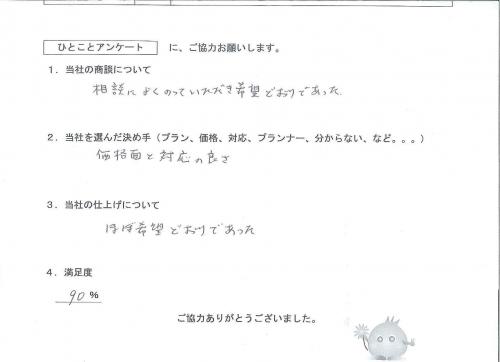 ひとことアンケート に、ご協力お願いします。
1．当社の商談について
相談によくのっていただき希望どおりであった.
2．当社を選んだ決め手（プラン、価格、対応、プランナー、分からない、など。。。）
価格面と対応の良さ
3．当社の仕上げについて
ほぼ希望どおりであった
4．満足度
90 %
ご協力ありがとうございました。